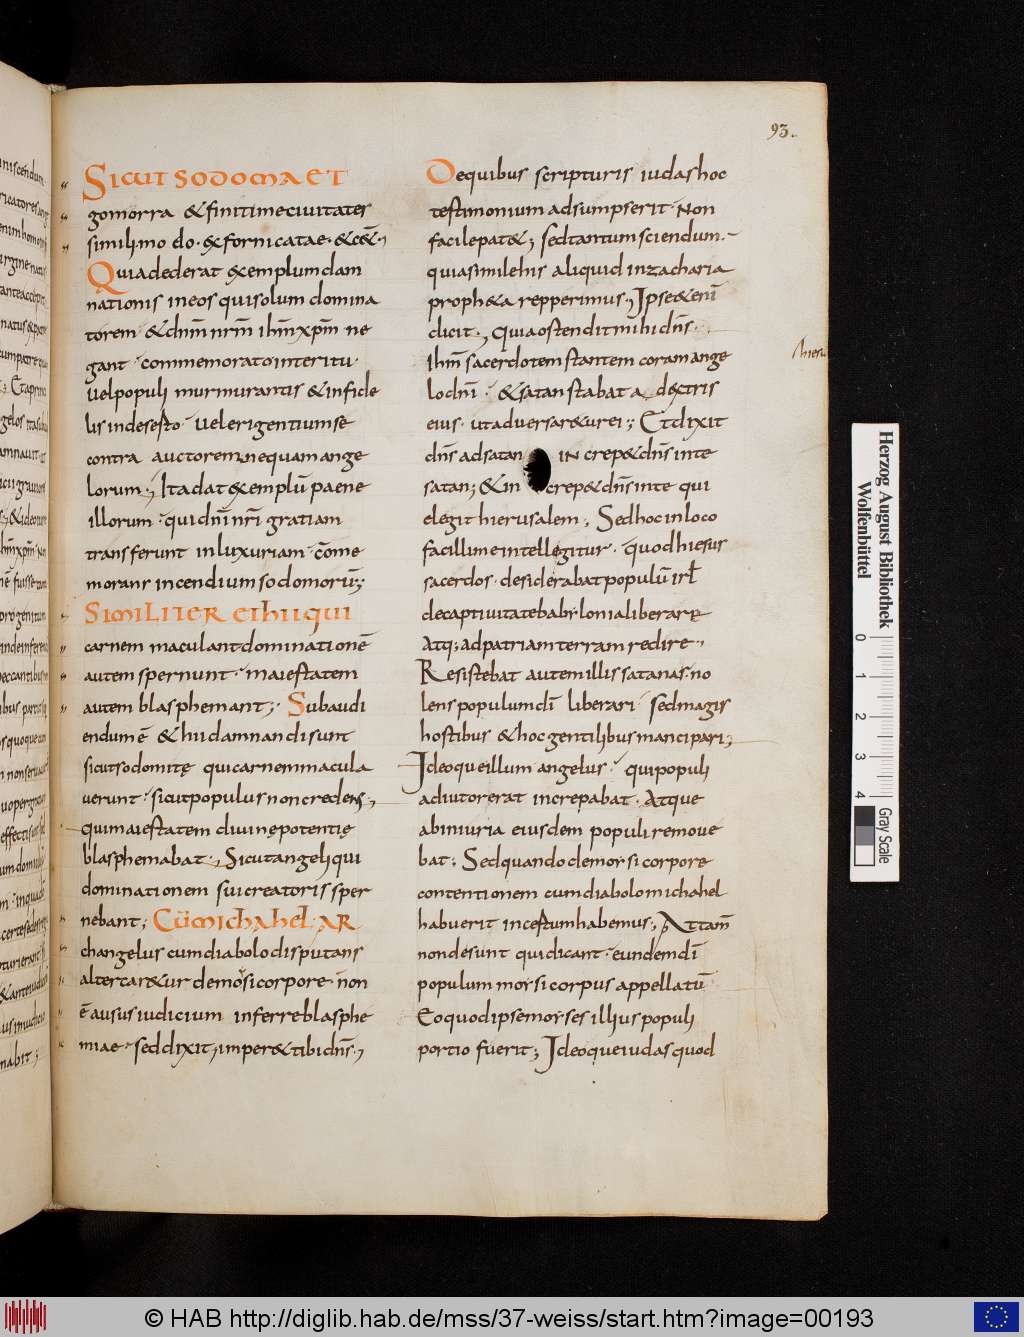 93.
Sicut sodoma et
gomorra & finitime ciuitates
simili modo · exfornicatae · & c&̄ ·,
Quia dederat exemplum dam
nationis in eos qui solum domina
torem · & dn̄m nr̄m ihm̄ xpm̄ ne
gant · commemorato interitu ·
uel populi murmurantis & infide
lis in deserto · uel erigentium se
contra auctorem nequam ange
lorum ·, Ita dat exemplū paene
illorum · qui dn̄i nr̄i gratiam
transferunt in luxuriam · cōme
morans incendium sodomorū;
Similiter et hii qui
carnem maculant dominationē
autem spernunt · maiestatem
autem blasphemant; · Subaudi
endum ē & hii damnandi sunt
sicut sodomitę qui carnem macula
uerunt · sicut populus non credens ·,
qui maiestatem diuinę potentię
blasphemabat ·, Sicut angeli qui
dominationem sui creatoris sper
nebant; Cū michahel · ar
changelus cum diabolo disputans
altercar&ur de mosi corpore non
ē ausus iudicium inferre blasphe
miae · sed dixit; imper& tibi dn̄s ·,
De quibus scripturis iudas hoc
testimonium adsumpserit · Non
facile pat&; sed tantum sciendum ·
quia simile his aliquid in zacharia
proph&a repperimus ·, Ipse & enī
dicit ·, Quia ostendit mihi dn̄s ·
Ihm̄ sacerdotem stantem coram ange
lo dn̄i · & satan stabat a dextris
eius · ut aduersar&ur ei ; Et dixit
dn̄s ad satan increp& dn̄s in te
satan; & increp& dn̄s in te qui
elegit hierusalem ; Sed hoc in loco
facillime intellegitur · quod hiesus
sacerdos · desiderabat populū irł
de captiuitate babylonia liberare
Atq; ad patriam terram redire ·,
Resistebat autem illis satanas · no
lens populum dī liberari · sed magis
hostibus & hoc gentilibus mancipari;
Ideoque illum angelus · qui populi
adiutor erat increpabat · Atque
ab iniuria eiusdem populi remoue
bat; Sed quando de morsi corpore
contentionem cum diabolo michahel
habuerit incestum habemus; Attam̄
non desunt qui dicant · eundem dī
populum morsi corpus appellatū
Eo quod ipse morses illius populi
portio fuerit; Ideoque iudas quod
Herzog August Bibliothek
Wolfenbüttel
0 1 2 3 4
Gray Scale
© HAB http://diglib.hab.de/mss/37-weiss/start.htm?image=00193